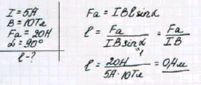 I = 5A
B = 10Тл
Fa = 20H
α = 90°
l - ?
Fa = IBlsinα
l = Fa / IBsinα = Fa / IB
l = 20H / 5A·10Тл = 0,4м